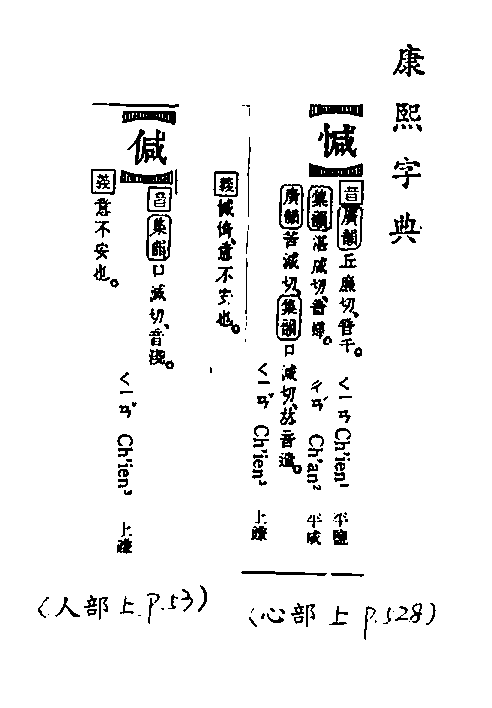 康熙字典
㦑
音 廣韻 丘廉切、音千。 ㄑㄧㄢ Ch'ien¹ 平鹽
集韻 湛咸切、音 ㄔㄢˊ Ch'an² 平咸
廣韻 苦減切、集韻 口減切、音
ㄑㄧㄢˇ Ch'ien³ 上豏
義 意不安也。
(心部上 p.528)
音 集韻 口減切、音淺。
義 意不安也。
ㄑㄧㄢˇ Ch'ien³ 上豏
(人部上 p.53)